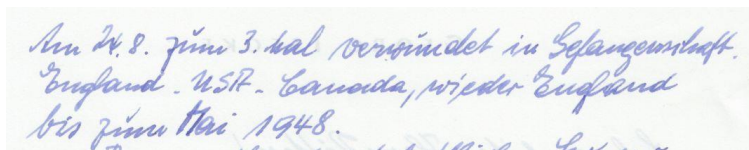 Am 24.8. zum 3. mal verwundet in Gefangenschaft.
England - USA - Canada, wieder England
bis zum Mai 1948.